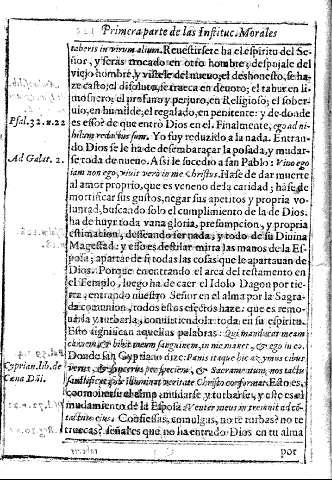 Primera parte de las Instituc. Morales
taberis in virum alium. Reuestirsete ha el espiritu del Se-
ñor, y seras trocado en otro hombre; despojale del
viejo hombre, y vistele del nueuo, el deshonesto, se ha-
ze casto; el disoluto, se trueca en deuoto; el tahur en li-
mosnero; el profano y perjuro, en Religioso; el sober-
uio, en humilde; el regalado, en penitente: y de donde
es esso? de que entrò Dios en el. Finalmente, ego ad ni-
Psal. 32. n. 22
hilum redactus sum. Yo fuy reduzido a la nada. Entran-
do Dios se le ha de desembaraçar la posada, y mudar-
Ad Galat. 2.
se toda de nueuo. Assi le sucedio a san Pablo: Viuo ego
iam non ego, viuit verò in me Christus. Hase de dar muerte
al amor proprio, que es veneno de la caridad; hase de
mortificar sus gustos, negar sus apetitos y propria vo
luntad, buscando solo el cumplimiento de la de Dios.
ha de huyr toda vana gloria, presumpcion, y propria
estimacion, desseando ser nada, y todo de su Diuina
Magestad: y esso es destilar mirra las manos de la Es-
posa; apartar de si todas las cosas que la apartauan de
Dios. Porque en entrando el arca del testamento en
el Templo, luego ha de caer el Idolo Dagon por tie-
rra, entrando nuestro Señor en el alma por la Sagra-
da comunion, todos estos efectos haze: que es remo-
uarla y turbarla, conuirtiendola toda en su espiritu.
Esto significan aquellas palabras: Qui manducat meam
carnem, & bibit meum sanguinem, in me manet, & ego in eo.
Cyprian. lib. de
Donde san Cypriano dize: Panis itaque hic azymus cibus
Cœna Dñi.
verus, & sincerus per speciem, & Sacramentum, nos tactu
sanctificat, fide illuminat, veritate Christo conformat. Esto es,
comouerse el alma, mudarse y turbarse, y este es el
mudamiento de la Esposa: Venter meus intremuit ad con-
tactum eius. Confiessas, comulgas, no te turbas? no te
truecas? señal es que no ha entrado Dios en tu alma
por